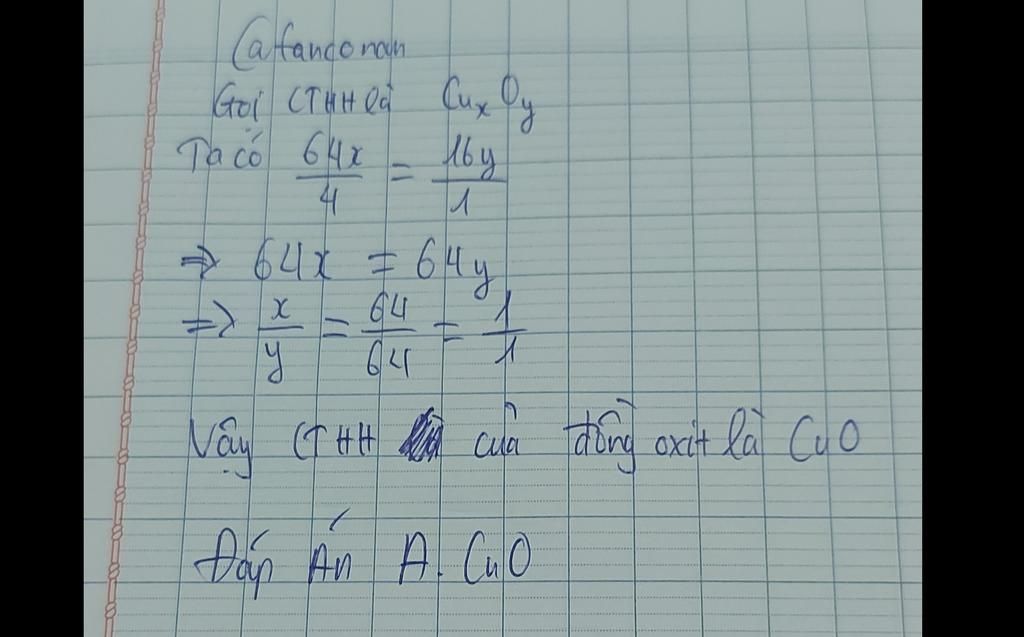 @fanconan
Gọi CTHH là CuxOy
Ta có 64x/4 = 16y/1
=> 64x = 64y
=> x/y = 64/64 = 1/1
Vậy CTHH của đồng oxit là CuO
Đáp Án A. CuO